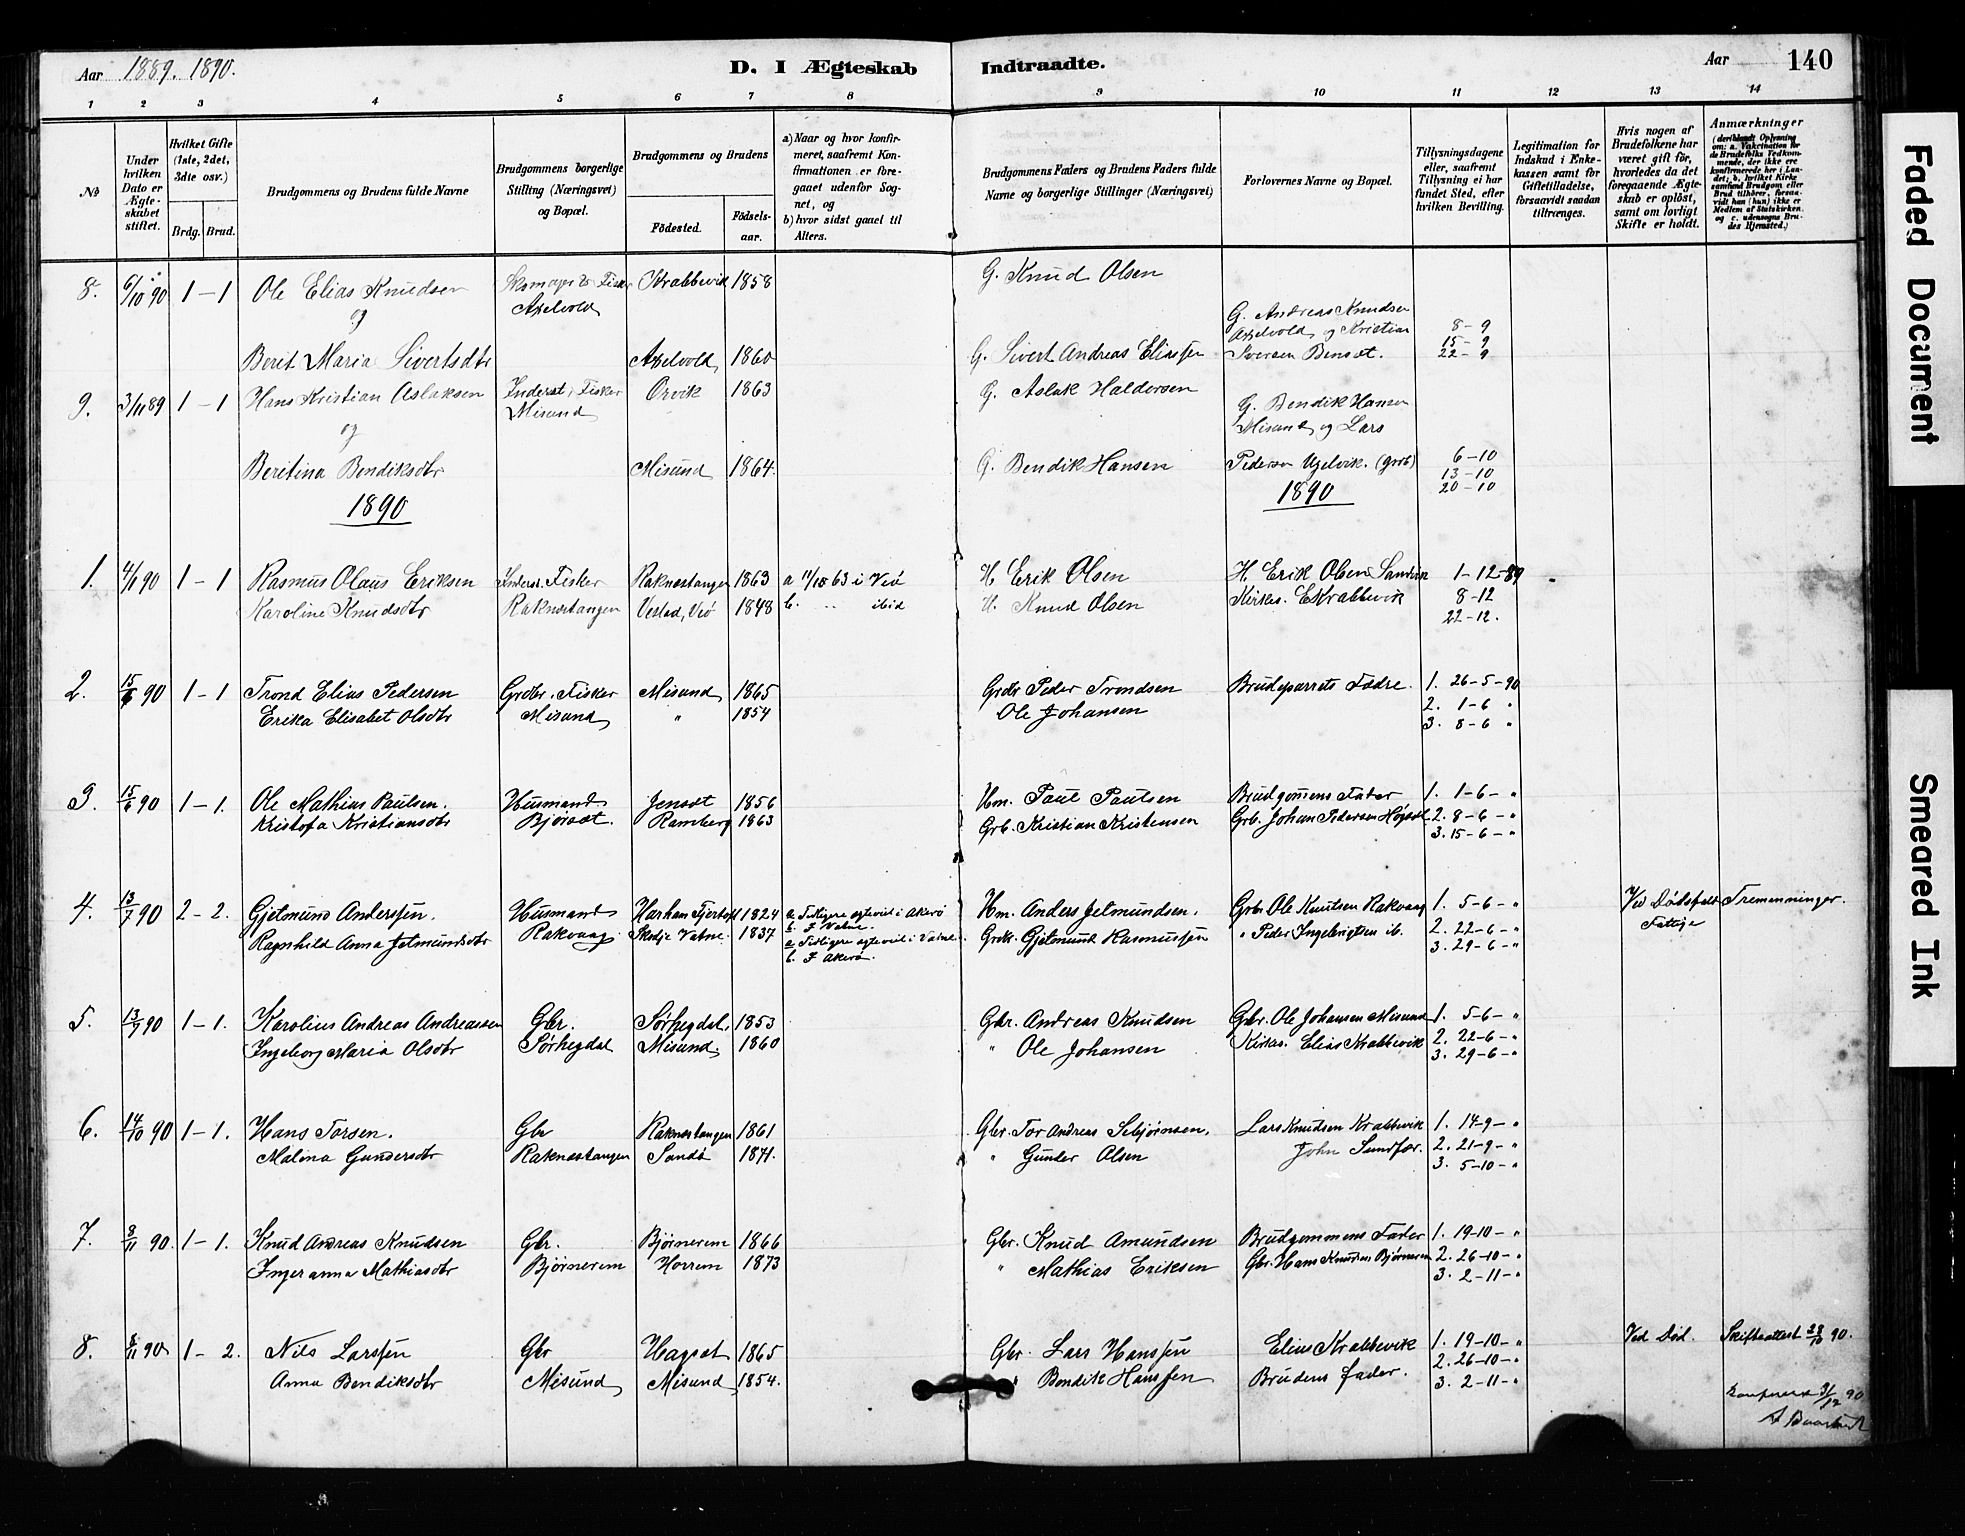 Aar 1889. 1890.
D. I Ægteskab Indtraadte.
Aar 140
1 2 3 4 5 6 7 8 9 10 11 12 13 14
No
Under hvilken Dato er Ægteskabet stiftet.
Hvilket Gifte (1ste, 2det, 3die osv.)
Brdg. Brud.
Brudgommens og Brudens fulde Navne
Brudgommens borgerlige Stilling (Næringsvei) og Bopæl.
Brudgommens og Brudens
Fødested. Fødselsaar.
a) Naar og hvor konfirmeret, saafremt Konfirmationen er foregaaet udenfor Sognet, og
b) hvor sidst gaaet til Alters.
Brudgommens Faders og Brudens Faders fulde Navne og borgerlige Stillinger (Næringsvei)
Forlovernes Navne og Bopæl.
Tillysningsdagene eller, saafremt Tillysning ei har fundet Sted, efter hvilken Bevilling.
Legitimation for Indskud i Enkekassen samt for Giftetilladelse, forsaavidt saadan tiltrænges.
Hvis nogen af Brudefolkene har været gift før, hvorledes da det foregaaende Ægteskab er opløst, samt om lovligt Skifte er holdt.
Anmærkninger
(deriblandt Oplysning om: a. Vakcination for de Brudefolks Vedkommende, der ikke ere konfirmerede her i Landet; b. hvilket Kirkesamfund Brudgom eller Brud tilhører, forsaavidt han (hun) ikke er Medlem af Statskirken. og c. udensogns Brudes Hjemsted.)
8. 6/10 90 1 - 1 Ole Elias Knudsen Skomager & Fisker Krabbevik 1858 G. Knud Olsen
og Axelvold G. Andreas Knudsen
Axelvold og Kristian 8-9
15-9
Berit Maria Sivertsdtr Axelvold 1860 G. Sivert Andreas Eliassen Iversen Benset. 22-9
9. 3/11 89 1 - 1 Hans Kristian Aslaksen Inderst, Fisker Orvik 1863 G. Aslak Haldorsen
og Misund G. Bendik Hansen
Misund og Lars
Beritina Bendiksdtr Misund 1864. G. Bendik Hansen Pedersen Ugelvik. (grb) 6-10
13-10
20-10
1890 1890
1. 4/1 90 1 - 1 Rasmus Olaus Eriksen Inderst. Fisker Raknestangen 1863 a 11/10 63 i Veø H Erik Olsen H. Erik Olsen Sandvik 1-12-89
Karoline Knudsdtr Raknestangen Vestad, Veø 1848 b. " ibid H. Knud Olsen Kirkes. E Krabbevik 8-12
22-12.
2. 15/6 90 1 - 1 Trond Elias Pedersen Grdbr. Fisker Misund 1865 Grdbr Peder Trondsen Brudeparrets Fædre. 1. 26-5-90
Erika Elisabet Olsdtr Misund " 1854 Ole Johansen 2. 1-6 "
3. 8-6 "
3. 15/6 90 1 - 1. Ole Mathias Paulsen. Husmand Jenset 1856 Hm. Paul Paulsen Brudgomens Fader 1. 1-6- "
Kristofa Kristiansdtr Bjørset. Ramberg 1863 Grb. Kristian Kristensen Grb. Johan Pedersen Høgset 2. 8-6- "
3. 15-6- "
4. 13/7 90 2 - 2. Gjetmund Anderssen. Husmand Harham Fjertoft 1824 a. Tidligere egteviet i Akerø Hm. Anders Jetmundsen. Grbr Ole Knutsen Rakvaag 1. 5-6- " Ved Dødsfald Tremenninger.
b. I Vatne.
Ragnhild Anna Jetmundsdtr Rakvaag Skodje Vatne. 1837 a Tidligere egteviet i Vatne. Grbr. Gjetmund Rasmussen " Peder Ingebrigtsen ib. 2. 22-6- " Fattige
b. I Akerø. 3. 29-6- "
5. 13/7 90 1 - 1. Karolius Andreas Andreassen Gbr. Sørhegdal. 1853 Gbr. Andreas Knudsen Gbr. Ole Johansen Misund 1. 5-6- "
Ingeborg Maria Olsdtr Sørhegdal Misund. 1860 " Ole Johansen Kirkes. Elias Krabbevik 2. 22-6- "
3. 29-6- "
6. 14/10 90 1 - 1. Hans Torsen. Gbr Raknestangen 1861 Gbr. Tor Andreas Sebjørnsen. Lars Knutsen Krabbevik 1. 14-9- "
Malina Gundersdtr Raknestangen Sandø 1871. " Gunder Olsen John Sundfær. 2. 21-9- "
3. 5-10- "
7. 9/11 90. 1 - 1. Knud Andreas Knudsen Gbr. Bjørnerem 1866 Gbr. Knud Amundsen Brudgommens Fader 1. 19-10- "
Inger anna Mathiasdtr Bjørnerem Horrem 1873 " Mathias Eriksen Gbr. Hans Knudsen Bjørnerem 2. 26-10- "
3. 2-11- "
8. 8/11 90 1 - 2. Nils Larssen Gbr Hagset 1865 Gbr. Lars Hanssen Elias Krabbevik 1. 19-10- " Ved Død. Skifteattest 23/10 90.
Anna Bendiksdtr Misund Misund 1854. " Bendik Hanssen Brudens fader. 2. 26-10- "
3. 2-11- "
31/12 90
Faded Document
Smeared Ink